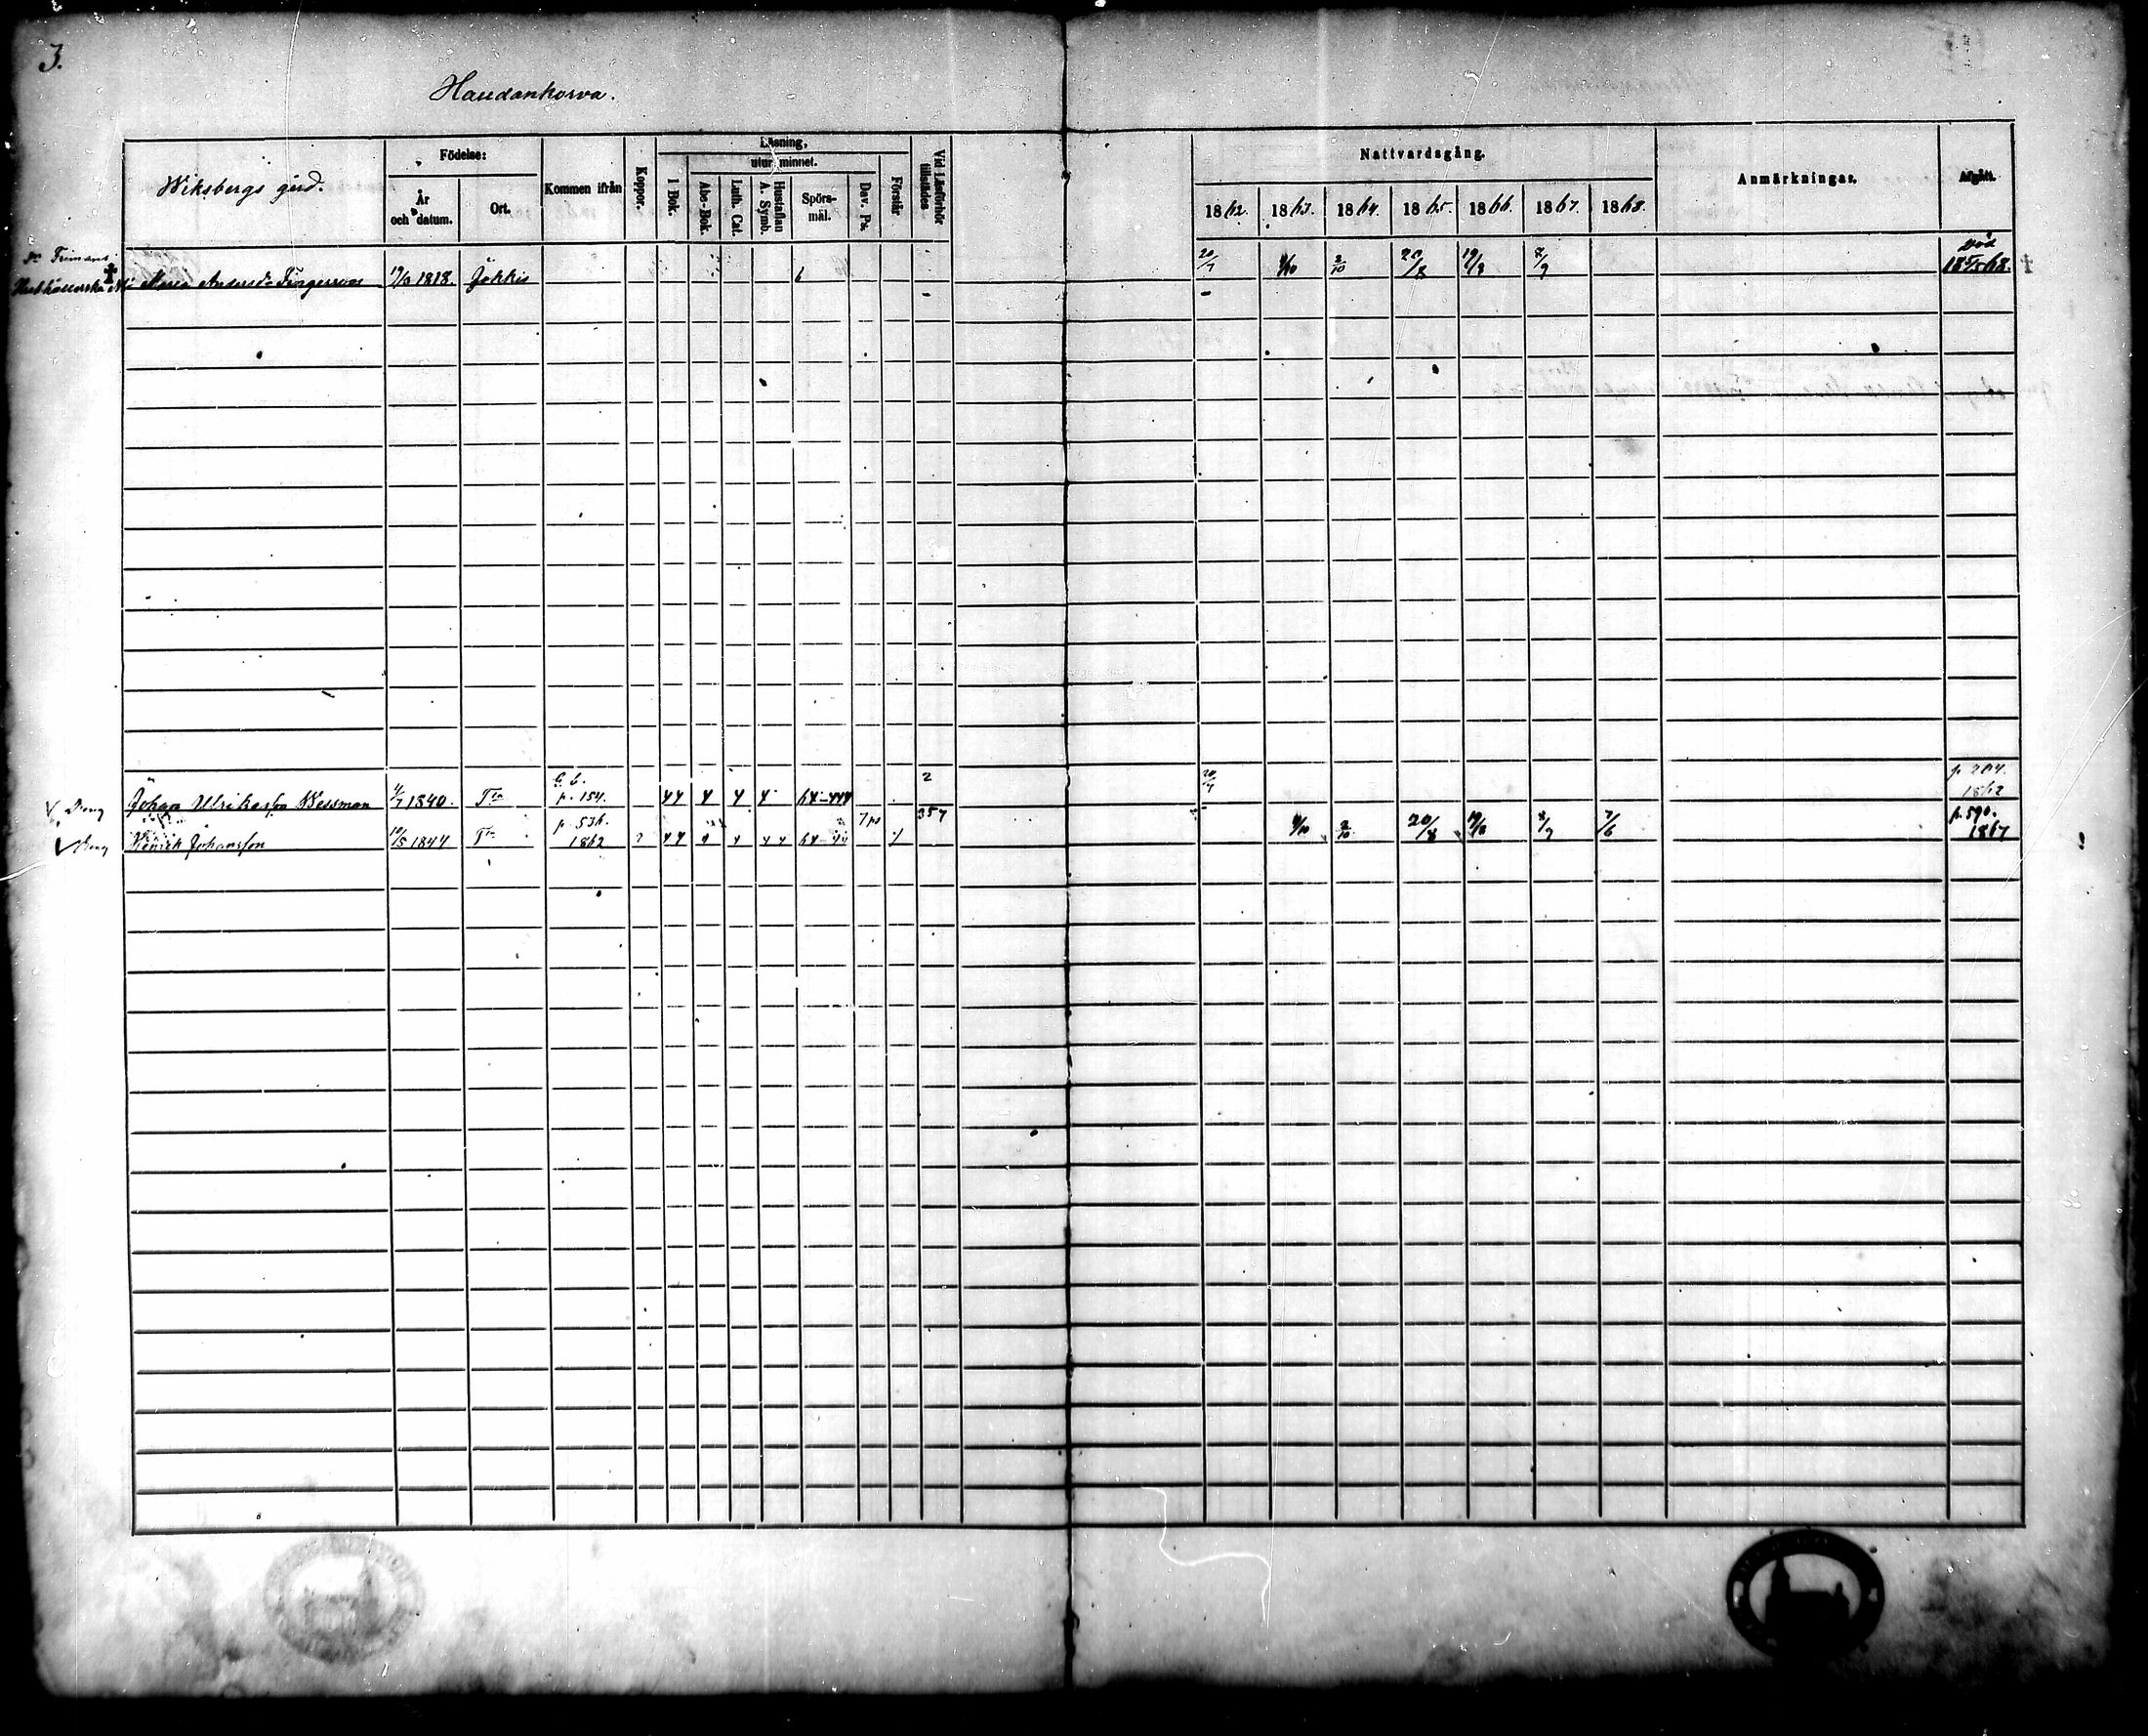 3.
Haudankorva.
Wiksbergs gård.
Födelse:
År och datum.
Ort.
Kommen ifrån
Koppor.
Läsning,
utur minnet.
I Bok.
Abc-Bok.
Luth. Cat.
Hustaflan A. Symb.
Spörs-mål.
Dav. Ps.
Förstår
Vid Läsförhör tillstädes.
Nattvardsgång.
1862. 1863. 1864. 1865. 1866. 1867. 1868.
Anmärkningar.
Afgått.
Maria Andersd:r 1818. Jokkis 6 20/7 9/10 2/10 20/8 19/8 8/9 död 1868.
Dreng Johan Ulriksson Wessman 4/7 1840. T:la G. b. p. 154. 44 4 4 4 64-444 2 20/7 p. 204. 1862
Dreng Henrik Johansson 10/5 1844 T:la p. 536. 1862 44 4 4 44 64-44 357 9/10 2/10 20/8 19/8 8/9 7/6 p. 590. 1867